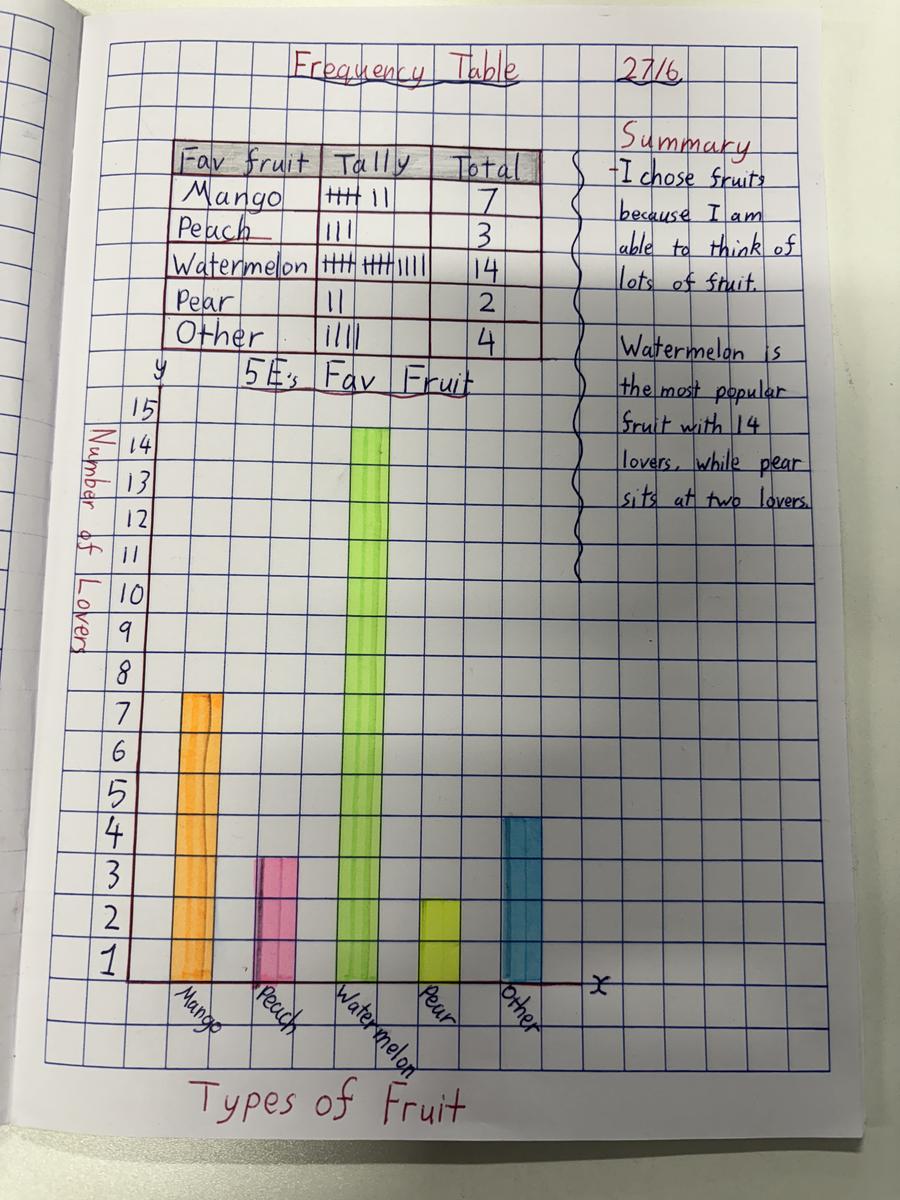 Frequency Table 27/6
Fav fruit Tally Total
Mango 7
Peach 3
Watermelon 14
Pear 2
Other 4
Summary
-I chose fruits
because I am
able to think of
lots of fruit.
Watermelon is
the most popular
fruit with 14
lovers, while pear
sits at two lovers.
5E's Fav Fruit
y
Number of Lovers
15
14
13
12
11
10
9
8
7
6
5
4
3
2
1
x
Mango Peach Watermelon Pear Other
Types of Fruit